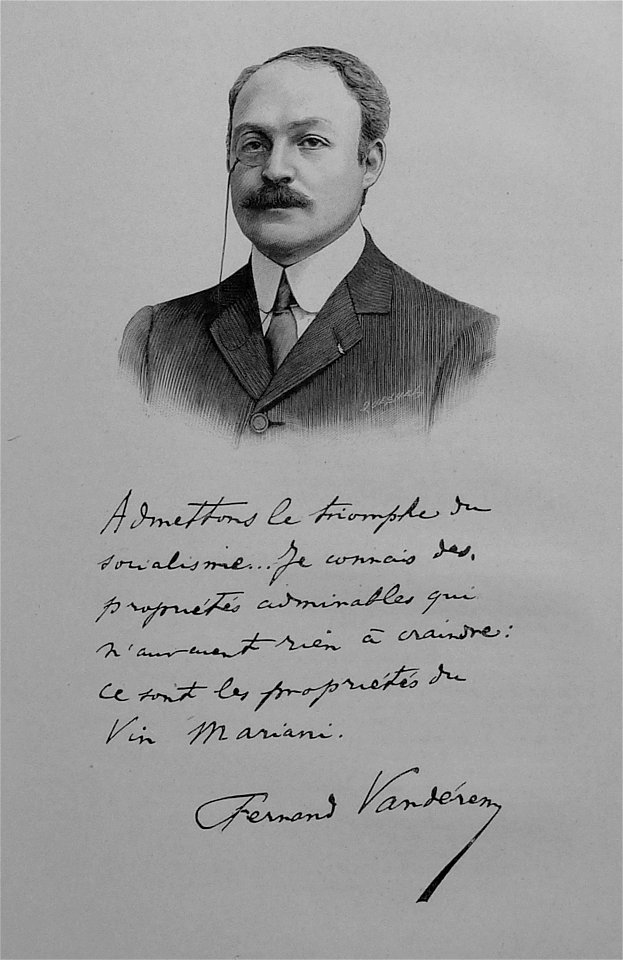 Admettons le triomphe du
socialisme... Je connais des
propriétés admirables qui
n'auraient rien à craindre:
ce sont les propriétés du
Vin Mariani.
Fernand Vandérem